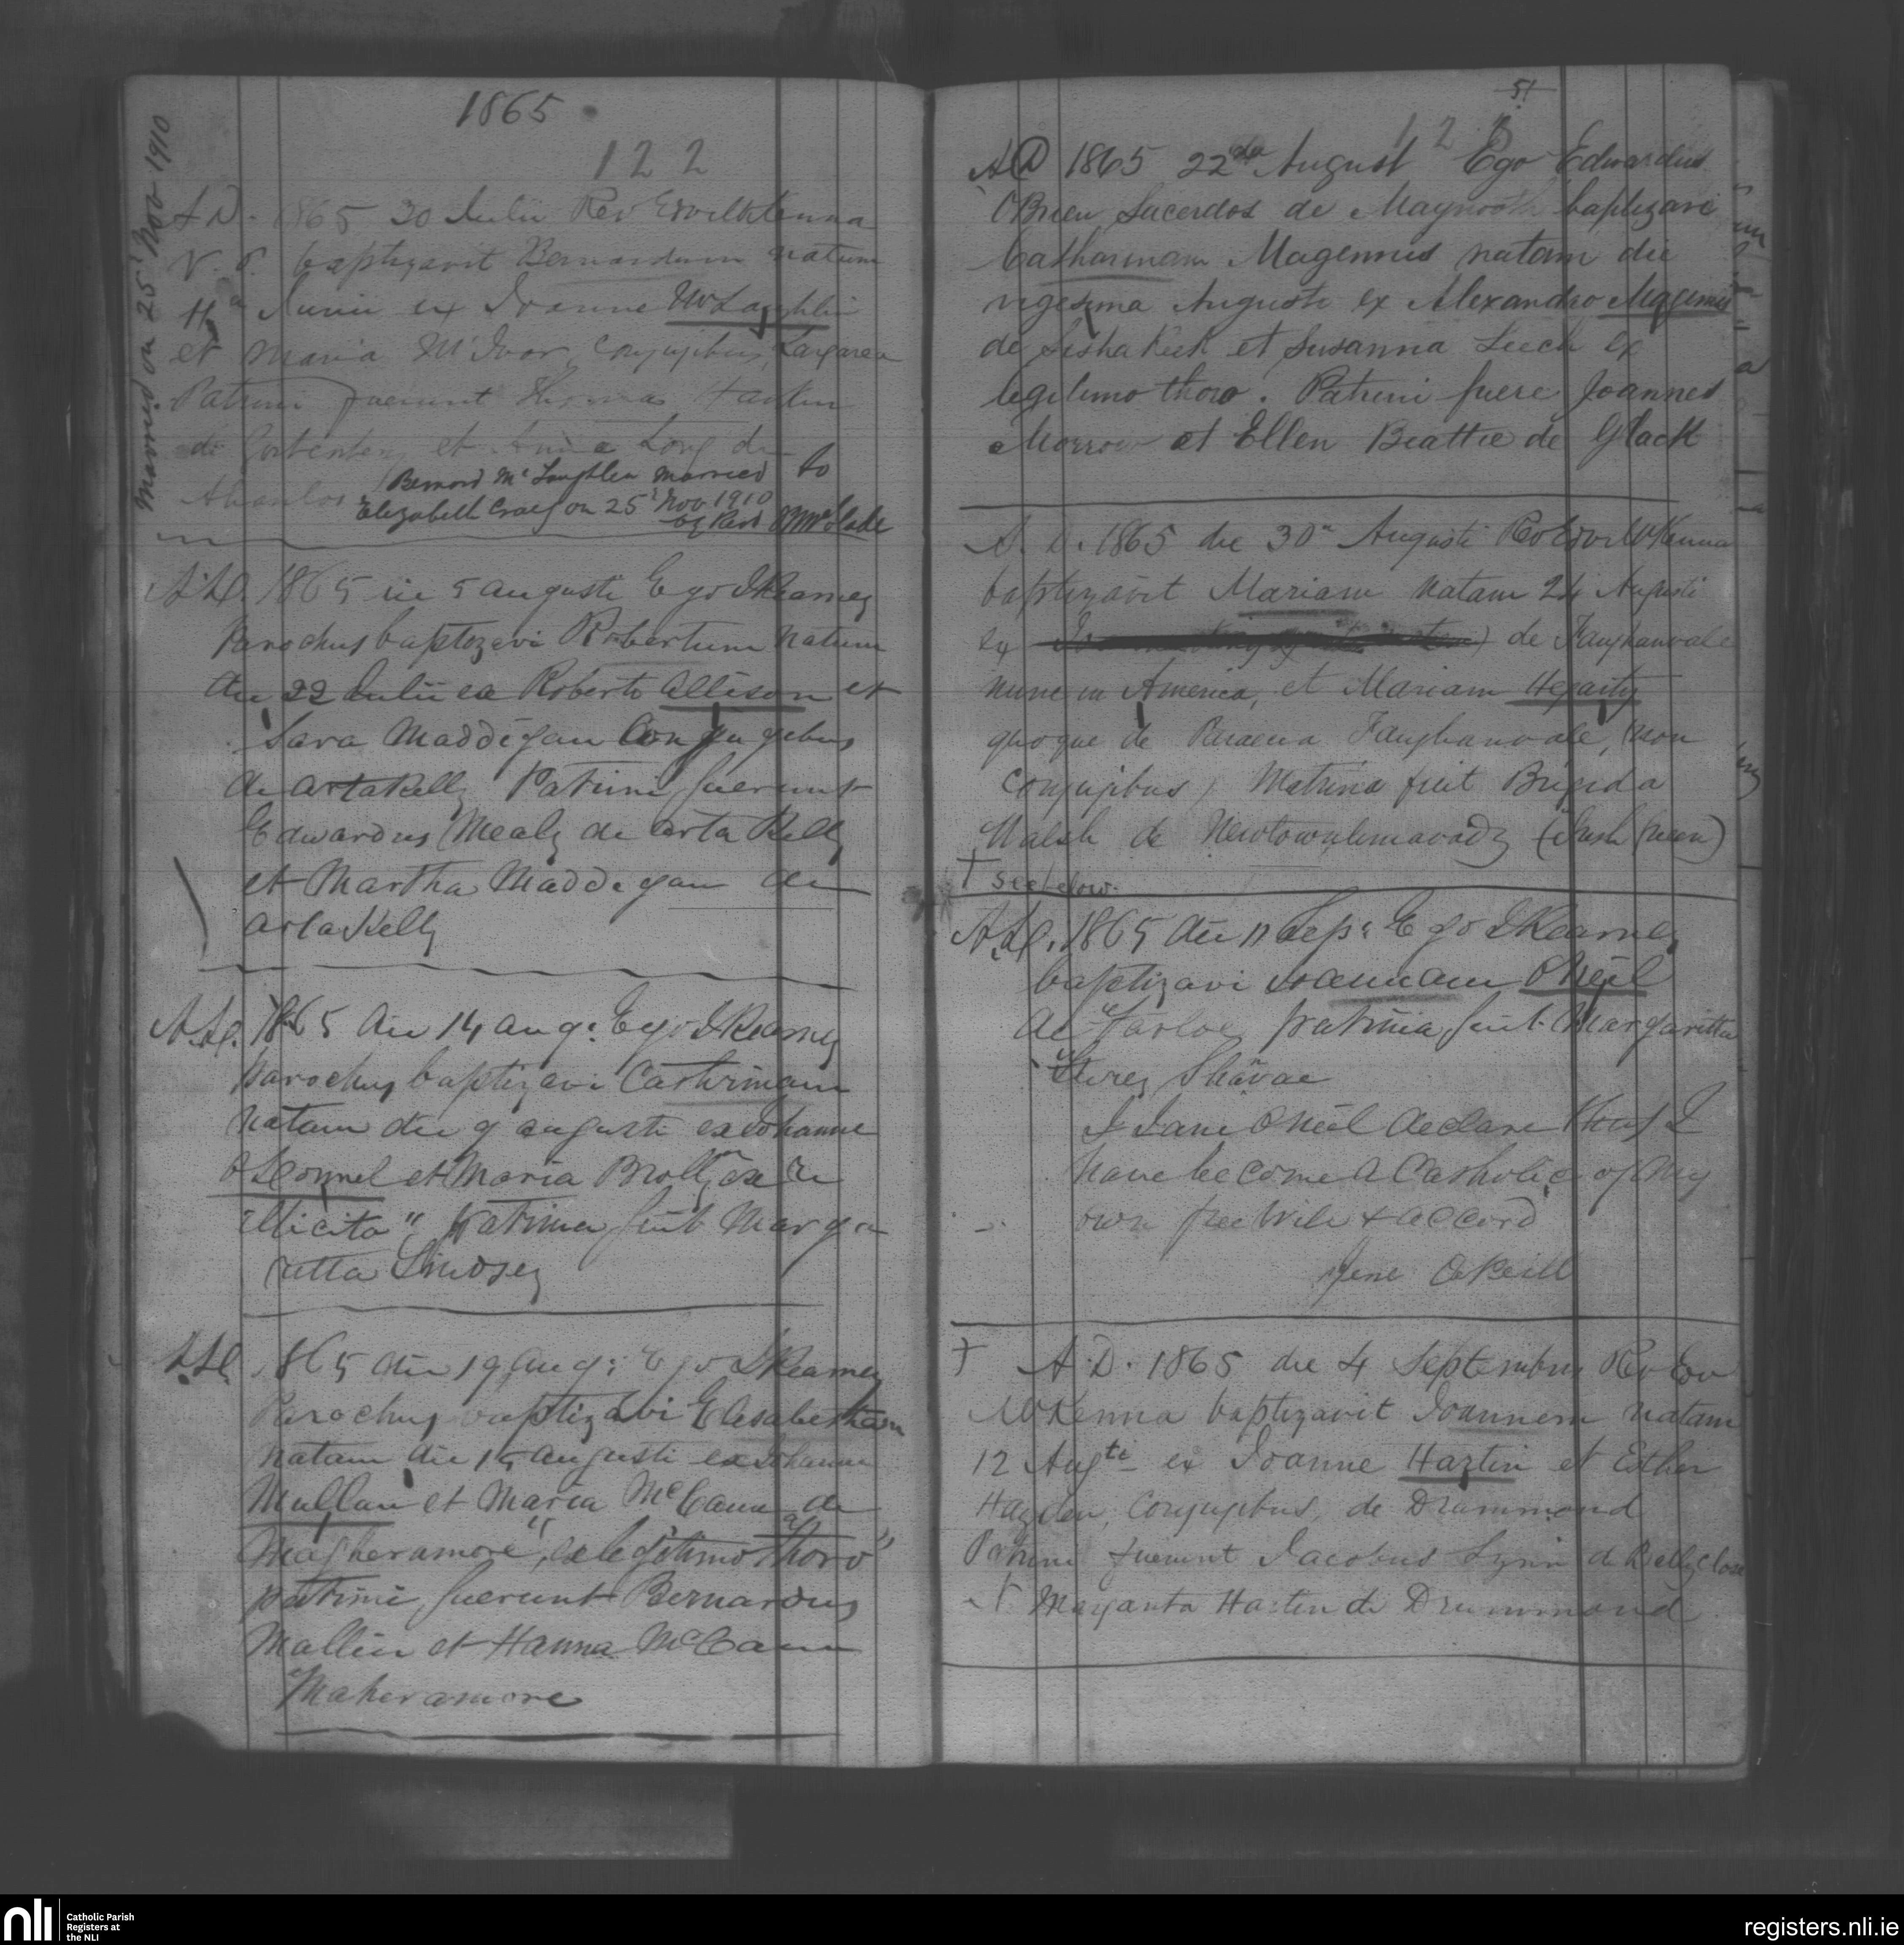 1865
122
Married on 25 Nov 1910
A D. 1865 30 Julii Rev Edw McKenna
V. P. baptizavit Bernardum natum
Junii ex Joanne McLaughlin
et Maria McIvor, Conjugibus,
Patrini fuerunt Thomas Hartin
de et Long de
Bernard McLaughlin married to
Elizabeth Craig on 25 Nov 1910
by Rev
A.D. 1865 die 5 augusti Ego J Kearney
Parochus baptizavi Robertum natum
die 22 Julii ex Roberto Allison et
Sara Maddigan Conjugibus
de Artakelly Patrini fuerunt
Edwardus Mealy de arta Kelly
et Martha Maddegan de
arlaKelly
A.D. 1865 die 14 aug: Ego J Kearney
parochus baptizavi Catherinam
natam die 9 augusti ex Johanne
O Donnel et Maria Brolly ex
illicito" patrina fuit Marga
ritta Lindsey
A.D. 1865 die 19 aug: Ego J Kearney
Parochus baptizavi Elesabetham
natam die 15 augusti ex Johanne
Mullan et Maria McCann de
Magheramore", ex legitimo thoro"
patrini fuerunt Bernardus
Mallin et Hanna McCann
Maheramore
51
123
AD 1865 22do August Ego Edwardus
O'Brien Sacerdos de Maynooth baptizavi
Catharinam Magennis natam die
vigesima Augusti ex Alexandro Magennis
de et Susanna Leech ex
legitimo thoro. Patrini fuere Joannes
Morrow et Ellen Beattie de Glack
A. D. 1865 die 30a Augusti Rev Edw McKenna
baptizavit Mariam natam 24 Augusti
ex de Faughanvale
nunc in America, et Mariam Hegarty
quoque de Faughanvale, (non
Conjugibus) Matrina fuit Brigida
Walsh de Newtownlimavady (Irish Green)
+ see below.
A.D. 1865 die 11 Sep: Ego J Kearney
baptizavi Joannam O Neil
de Farloe patrina fuit Margaritta
I Jane O Neil declare that I
have become a Catholic of my
own free will & accord
Jene O Neill
+ A.D. 1865 die 4 Septembris Rev Edw
McKenna baptizavit Joannem natum
12 Augti ex Joanne Hartin et Esther
Hayden, Conjugibus, de Drummond
Patrini fuerunt Jacobus Lynn d Ballyclose
et Margarita Hartin de Drummond
nli
Catholic Parish
Registers at
the NLI
registers.nli.ie